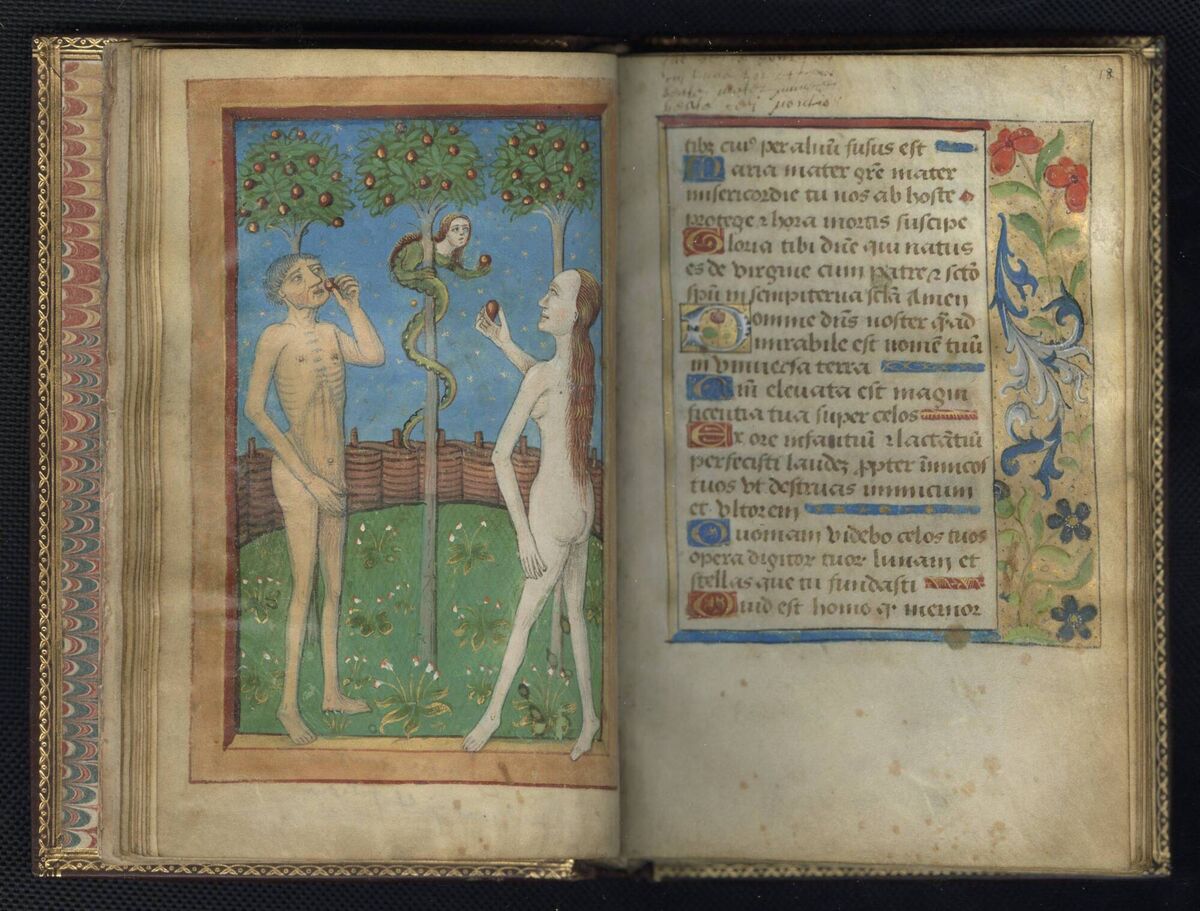 18
tibꝫ cuiꝰ per aluiu͂ fusus est
Maria mater gr̄e mater
misericordie tu nos ab hoste
protege ⁊ hora mortis suscipe
Gloria tibi dn̄e qui natus
es de virgine cum patre ⁊ sc̄tō
spū in sempiterna sc̄la Amen
Domine dn̄s noster q̄ ad
mirabile est nomē tuū
in vniuersa terra
Qm̄ eleuata est magni
ficentia tua super celos
Ex ore infantiū ⁊ lactātiū
perfecisti laudeꝫ ꝓpter inimicos
tuos vt destruas inimicum
et vltorem
Quoniam videbo celos tuos
opera digitor tuor lunam et
stellas que tu fundasti
Quid est homo q̄ memor